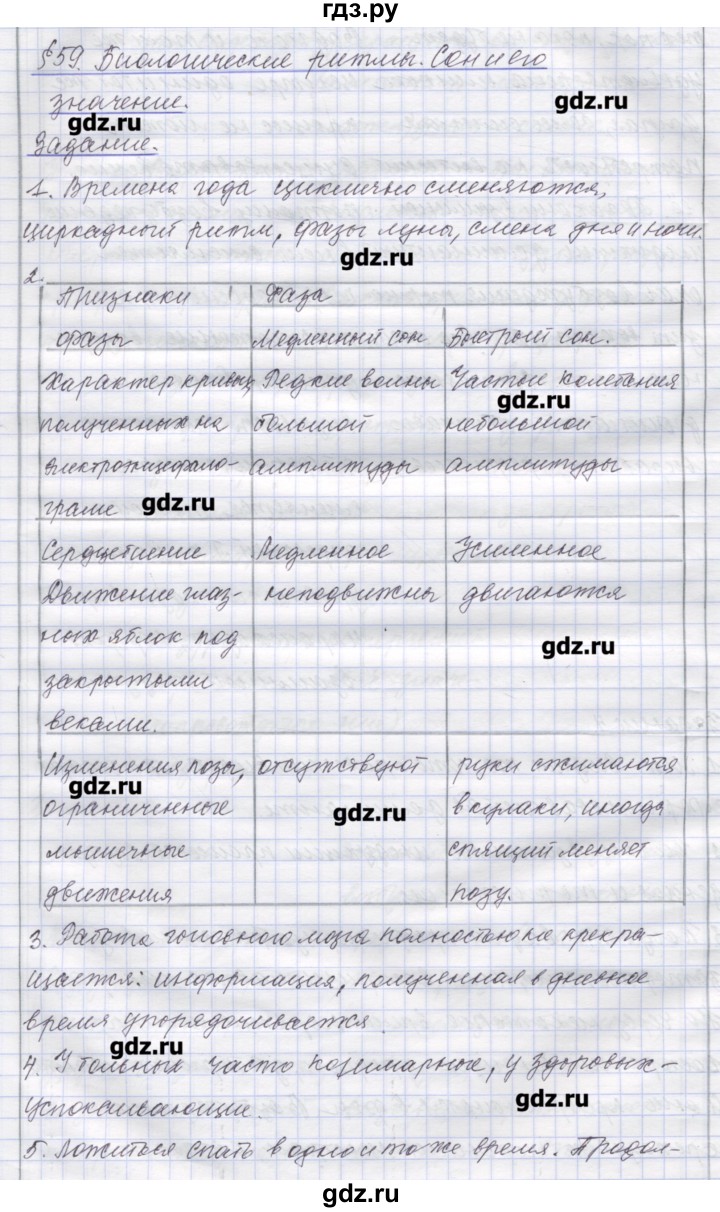 гдз.ру
§59. Биологические ритмы. Сон и его
значение.
gdz.ru
gdz.ru
Задание.
1. Времена года циклично сменяются,
циркадный ритм, фазы луны, смена дня и ночи.
gdz.ru
2.
Признаки Фаза
фазы Медленный сон Быстрый сон.
Характер кривых, Редкие волны Частые колебания
gdz.ru
полученных на большой небольшой
электроэнцефало- амплитуды амплитуды
грамме gdz.ru
Сердцебиение Медленное Усиленное
Движение глаз- неподвижны двигаются
ных яблок под gdz.ru
закрытыми
веками.
Изменения позы, отсутствуют руки сжимаются
gdz.ru
ограниченные gdz.ru в кулаки, иногда
мышечные спящий меняет
движения позу.
3. Работа головного мозга полностью не прекра-
щается: информация, полученная в дневное
время упорядочивается
gdz.ru
4. У больных часто кошмарные, у здоровых -
успокаивающие. gdz.ru
5. Ложиться спать в одно и то же время. Продол-
gdz.ru